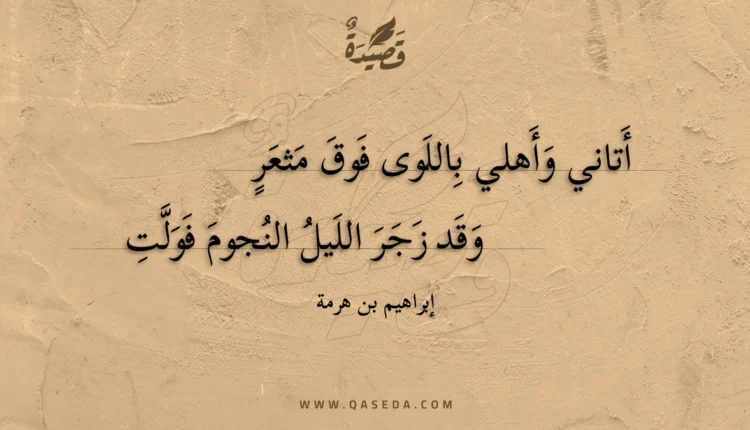 قَصِيدَةٌ
أَتاني وَأَهلي بِاللَوى فَوقَ مَثعَرٍ
وَقَد زَجَرَ اللَيلُ النُجومَ فَوَلَّتِ
إبراهيم بن هرمة
WWW.QASEDA.COM